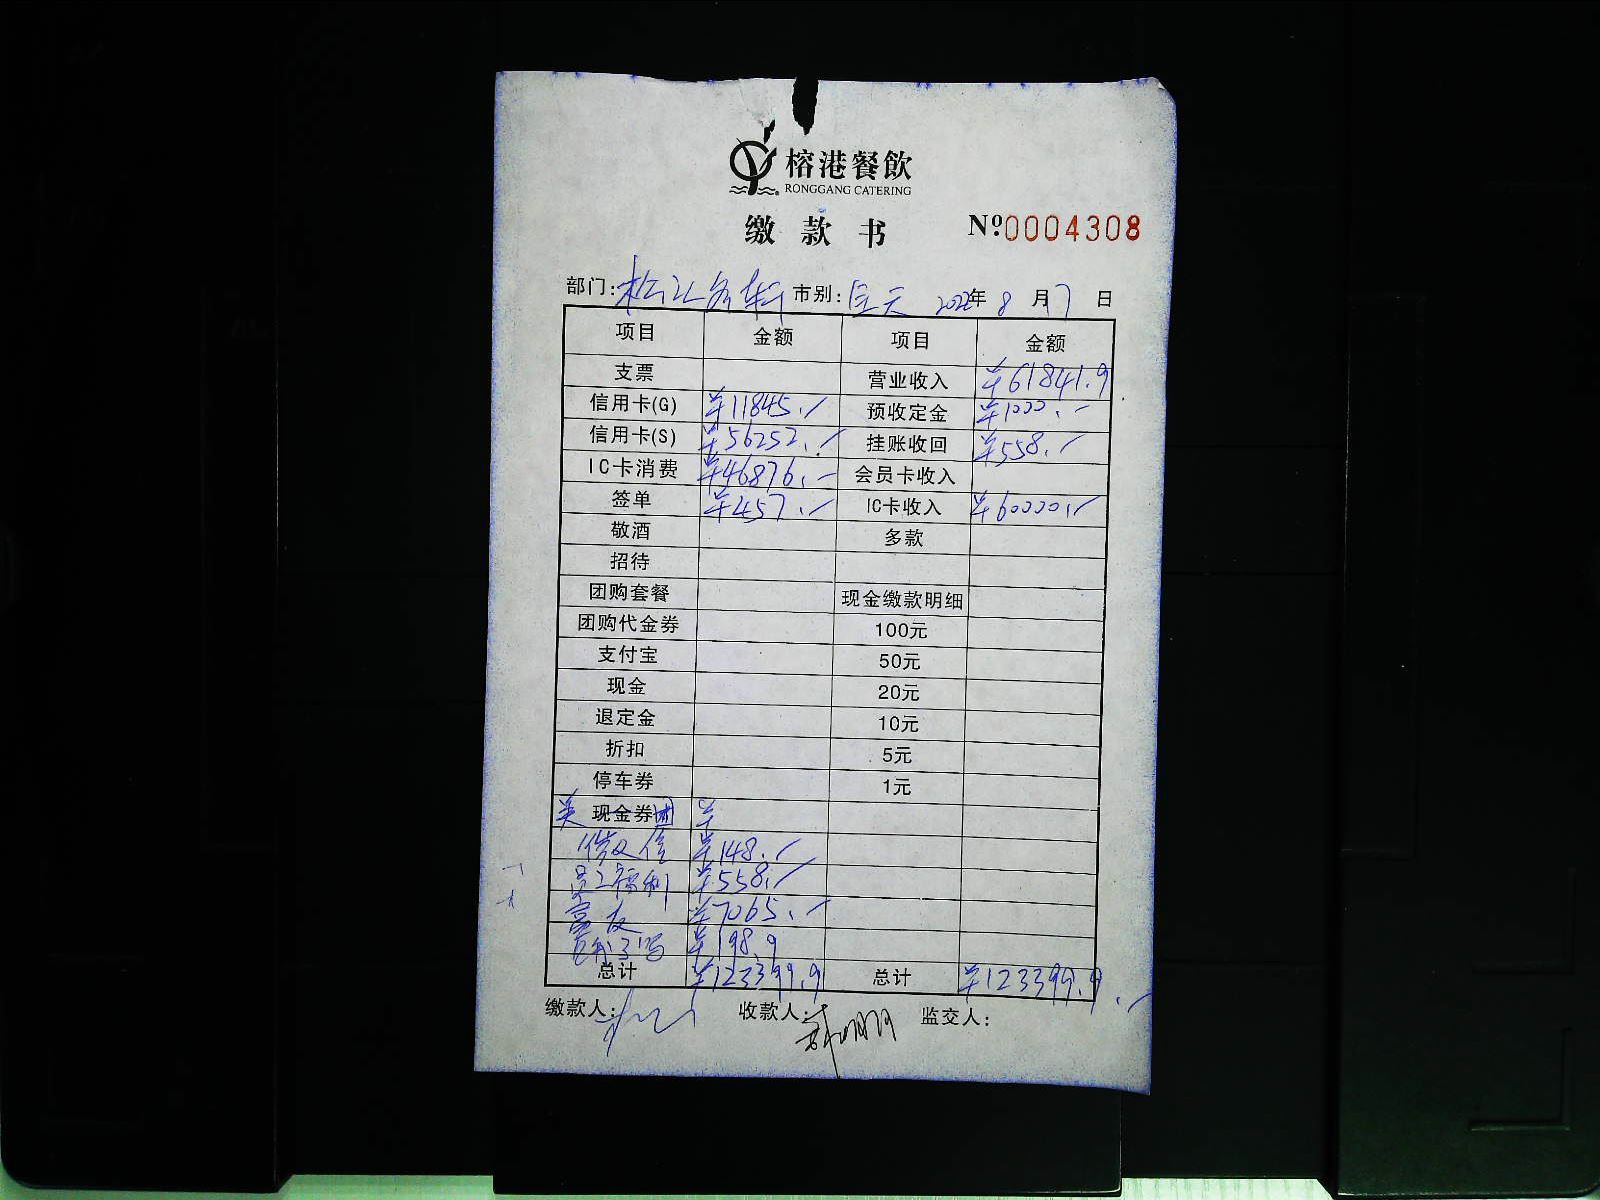 榕港餐飲
RONGGANG CATERING
缴款书 Nº:0004308
部门: 市别:全天 2022年8月7日
项目 金额 项目 金额
支票 营业收入 ¥61841.9
信用卡(G) ¥11845.- 预收定金 ¥1000.-
信用卡(S) ¥56252.- 挂账收回 ¥558.-
IC卡消费 ¥46876.- 会员卡收入
签单 ¥457.- IC卡收入 ¥60000.-
敬酒 多款
招待
团购套餐 现金缴款明细
团购代金券 100元
支付宝 50元
现金 20元
退定金 10元
折扣 5元
停车券 1元
美现金券团 ¥
¥148.-
员工福利 ¥558.-
¥7065.-
¥198.9
总计 ¥123399.9 总计 ¥123399.9
缴款人: 收款人: 监交人: